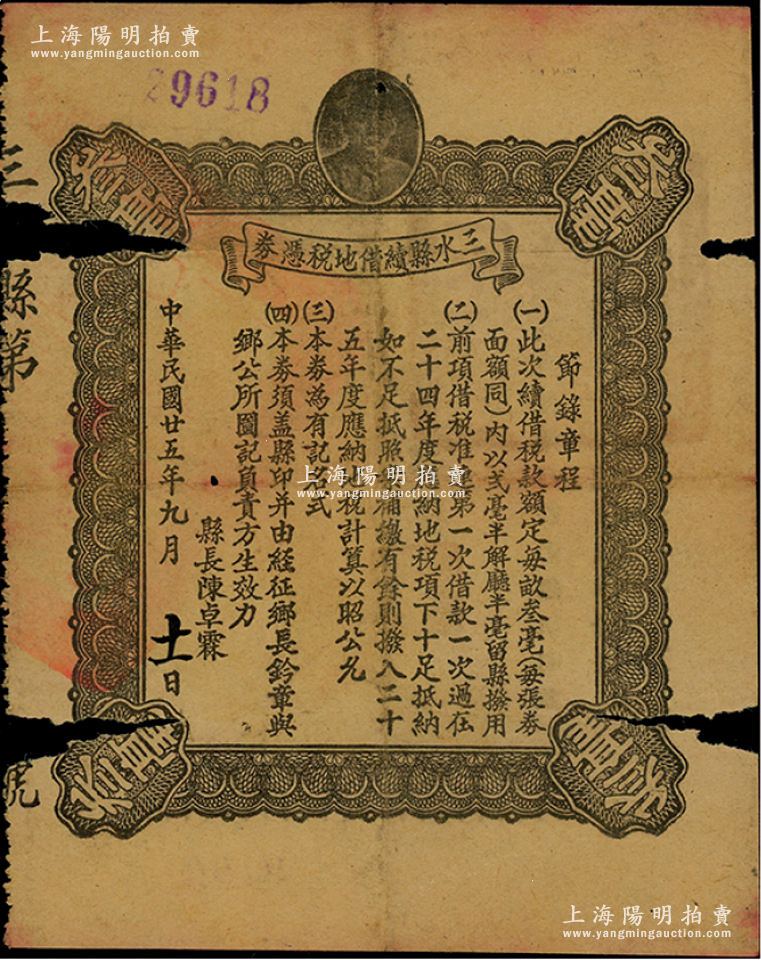 上海陽明拍賣
www.yangmingauction.com
9618
叁毫
叁毫
三水縣續借地稅憑券
節錄章程
(一)此次續借稅款額定每畝叁毫(每張券
面額同)內以弍毫半解廳半毫留縣撥用
(二)前項借稅准連第一次借款一次過在
二十四年度應納地稅項下十足抵納
如不足抵照數補繳有餘則撥入二十
五年度應納地稅計算以昭公允
(三)本券為有記名式
(四)本券須盖縣印并由經征鄉長鈐章與
鄉公所圖記負責方生效力
縣長陳卓霖
中華民國廿五年九月 十一日
三
縣第
號
上海陽明拍賣
www.yangmingauction.com
叁毫
叁毫
上海陽明拍賣
www.yangmingauction.com